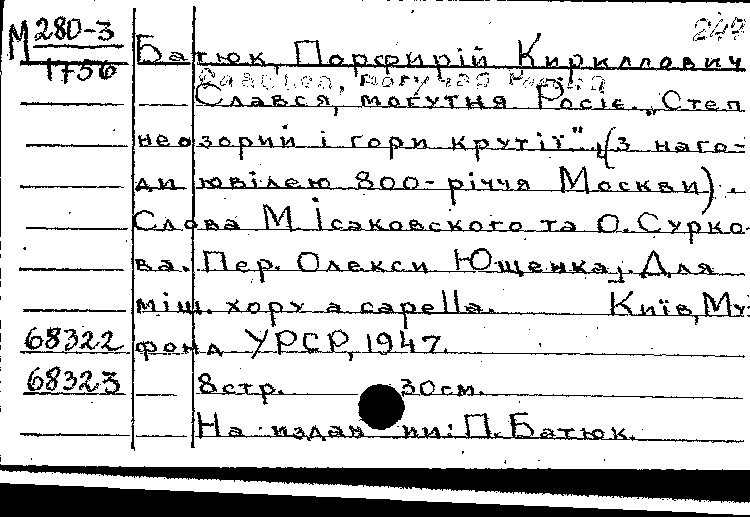 249
М 280-3
1756
Батюк, Порфирій Кириллович
Славься, могучая Россия
Слався, могутня Росіє. „Степ
неозорий і гори крутії", (З наго-
ди ювілею 800-річчя Москви).
Слова М. Ісаковского та О. Сурко-
ва. Пер. Олекси Ющенка. Для
міш. хору a capella. Київ, Му
68322 фонд УРСР, 1947.
68323 8 стр. 30 см.
На издании: П. Батюк.